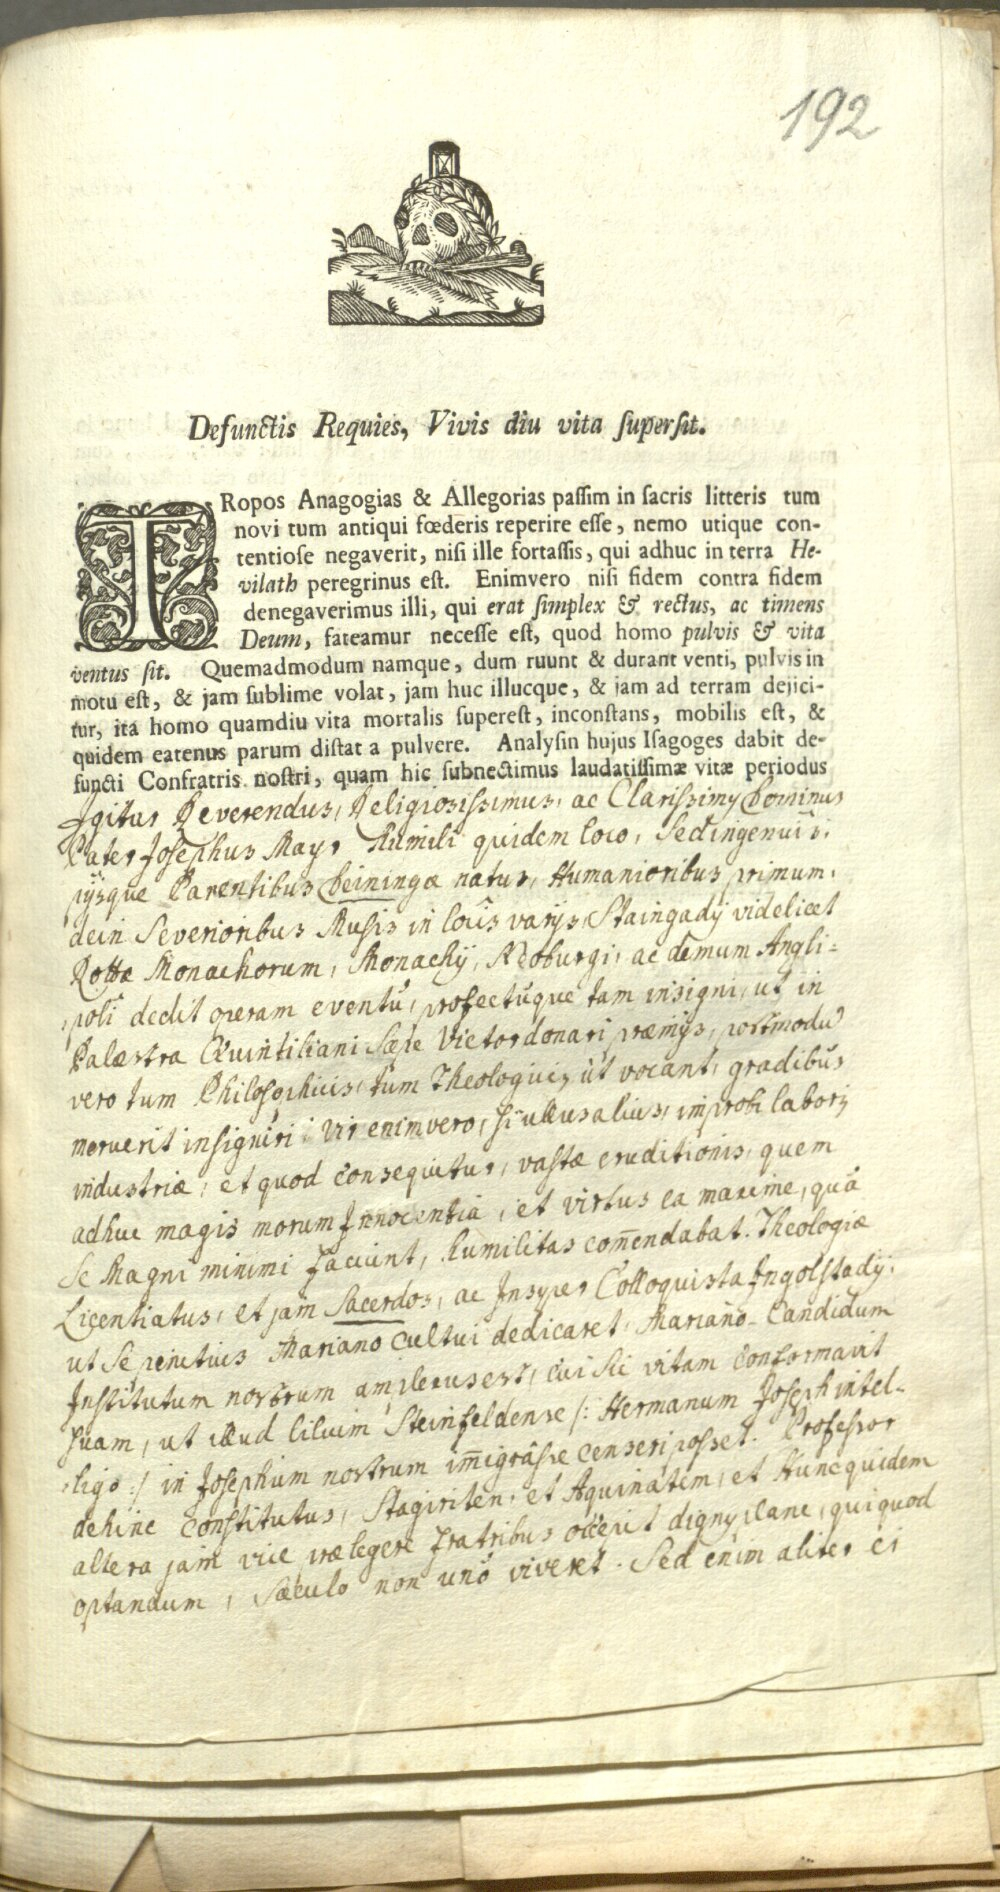 192
Defunctis Requies, Vivis diu vita superſit.
TRopos Anagogias & Allegorias paſſim in ſacris litteris tum
novi tum antiqui fœderis reperire eſſe, nemo utique con-
tentioſe negaverit, niſi ille fortaſſis, qui adhuc in terra He-
vilath peregrinus eſt. Enimvero niſi fidem contra fidem
denegaverimus illi, qui erat ſimplex & rectus, ac timens
Deum, fateamur neceſſe eſt, quod homo pulvis & vita
ventus ſit. Quemadmodum namque, dum ruunt & durant venti, pulvis in
motu eſt, & jam ſublime volat, jam huc illucque, & jam ad terram dejici-
tur, ita homo quamdiu vita mortalis ſupereſt, inconſtans, mobilis eſt, &
quidem eatenus parum diſtat a pulvere. Analyſin hujus Iſagoges dabit de-
functi Confratris noſtri, quam hic ſubnectimus laudatiſſimæ vitæ periodus
Igitur Reverendus, Religiosissimus, ac Clarissimy Dominus
Pater Josephus Mayr humili quidem loco, sed ingenuis
pijsque Parentibus Deiningæ natus, Humanioribus primum,
dein Severioribus Musis in locis varijs, Staingadij videlicet
Rottæ Monachorum, Monachij, Neoburgi, ac demum Angli-
poli dedit operam eventu, profectuque tam insigni, ut in
Palæstra Quintiliani sæpe Victor donari præmijs, postmodu
vero tum Philosophicis, tum Theologicis, ut vocant, gradibus
meruerit insigniri. Vir enimvero, si ullus alius, improbi laboris
industriæ, et quod consequitur, vastæ eruditionis, quem
adhuc magis morum Innocentia, et virtus ea maxime, quâ
se Magni minimi faciunt, humilitas com̄endabat. Theologiæ
Licentiatus, et jam Sacerdos, ac Insuper Colloquista Ingolstadij,
ut se penitius Mariano cultui dedicaret, Mariano-Candidum
Institutum nostrum amplexus est, cui sic vitam conformavit
suam, ut illud lilium Steinfeldense /: Hermanum Joseph intel-
ligo :/ in Josephum nostrum im̄igrâsse censeri posset. Professor
dehinc constitutus, Stagiriten, et Aquinatem, et Hunc quidem
altera jam vice prælegere Fratribus occepit digny plane, qui quod
optandum, sæculo non uno viveret. Sed enim aliter ei